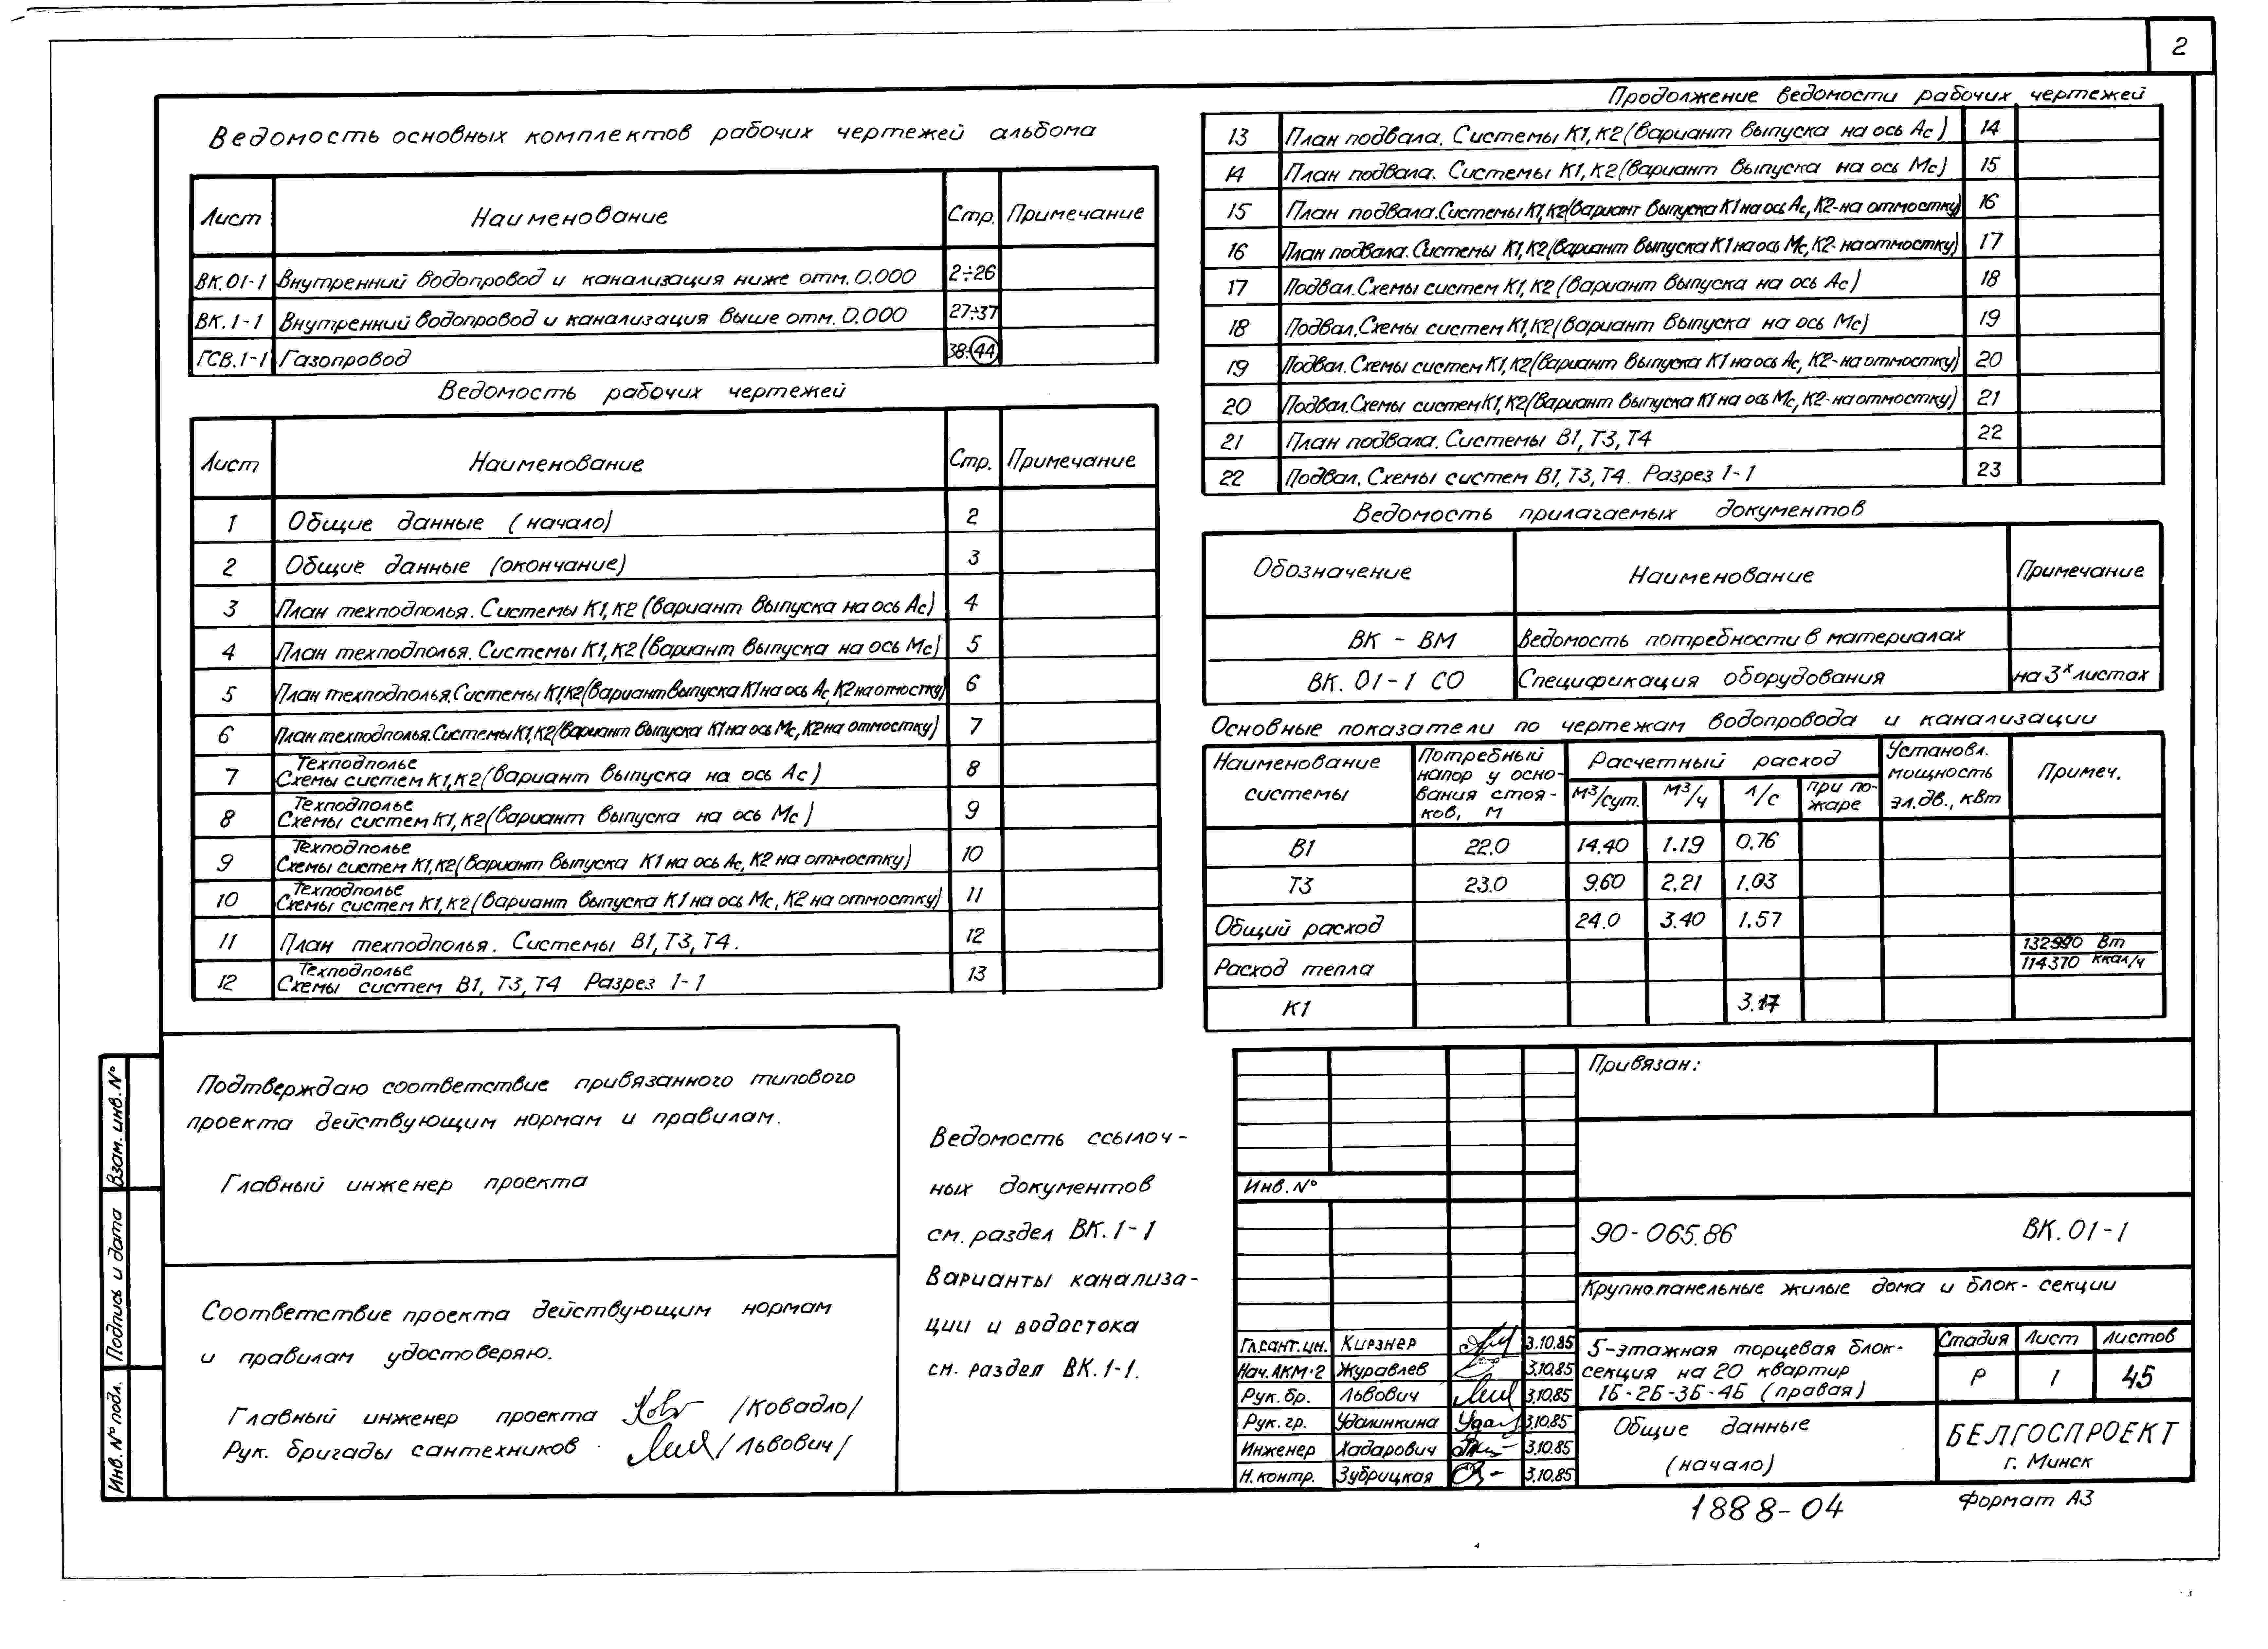 2
Ведомость основных комплектов рабочих чертежей альбома
Лист Наименование Стр. Примечание
ВК.01-1 Внутренний водопровод и канализация ниже отм. 0.000 2÷26
ВК.1-1 Внутренний водопровод и канализация выше отм. 0.000 27÷37
ГСВ.1-1 Газопровод 38÷44
Ведомость рабочих чертежей
Лист Наименование Стр. Примечание
1 Общие данные (начало) 2
2 Общие данные (окончание) 3
3 План техподполья. Системы К1, К2 (вариант выпуска на ось Ас) 4
4 План техподполья. Системы К1, К2 (вариант выпуска на ось Мс) 5
5 План техподполья. Системы К1, К2 (вариант выпуска К1 на ось Ас, К2 на отмостку) 6
6 План техподполья. Системы К1, К2 (вариант выпуска К1 на ось Мс, К2 на отмостку) 7
7 Техподполье
Схемы систем К1, К2 (вариант выпуска на ось Ас) 8
8 Техподполье
Схемы систем К1, К2 (вариант выпуска на ось Мс) 9
9 Техподполье
Схемы систем К1, К2 (вариант выпуска К1 на ось Ас, К2 на отмостку) 10
10 Техподполье
Схемы систем К1, К2 (вариант выпуска К1 на ось Мс, К2 на отмостку) 11
11 План техподполья. Системы В1, Т3, Т4. 12
12 Техподполье
Схемы систем В1, Т3, Т4 Разрез 1-1 13
Продолжение ведомости рабочих чертежей
13 План подвала. Системы К1, К2 (вариант выпуска на ось Ас) 14
14 План подвала. Системы К1, К2 (вариант выпуска на ось Мс) 15
15 План подвала. Системы К1, К2 (вариант выпуска К1 на ось Ас, К2-на отмостку) 16
16 План подвала. Системы К1, К2 (вариант выпуска К1 на ось Мс, К2-на отмостку) 17
17 Подвал. Схемы систем К1, К2 (вариант выпуска на ось Ас) 18
18 Подвал. Схемы систем К1, К2 (вариант выпуска на ось Мс) 19
19 Подвал. Схемы систем К1, К2 (вариант выпуска К1 на ось Ас, К2-на отмостку) 20
20 Подвал. Схемы систем К1, К2 (вариант выпуска К1 на ось Мс, К2-на отмостку) 21
21 План подвала. Системы В1, Т3, Т4 22
22 Подвал. Схемы систем В1, Т3, Т4. Разрез 1-1 23
Ведомость прилагаемых документов
Обозначение Наименование Примечание
ВК - ВМ Ведомость потребности в материалах
ВК. 01-1 СО Спецификация оборудования на 3х листах
Основные показатели по чертежам водопровода и канализации
Наименование системы Потребный напор у осно-вания стоя-ков, м Расчетный расход Установл. мощность эл.дв., кВт Примеч.
м³/сут. м³/ч л/с при по-жаре
В1 22.0 14.40 1.19 0.76
Т3 23.0 9.60 2.21 1.03
Общий расход 24.0 3.40 1.57
Расход тепла 132990 Вт
114370 ккал/ч
К1 3.17
Подтверждаю соответствие привязанного типового
проекта действующим нормам и правилам.
Главный инженер проекта
Соответствие проекта действующим нормам
и правилам удостоверяю.
Главный инженер проекта /Ковадло/
Рук. бригады сантехников /Львович/
Ведомость ссылоч-
ных документов
см. раздел ВК. 1-1
Варианты канализа-
ции и водостока
см. раздел ВК. 1-1.
Взам. инв. №
Подпись и дата
Инв. № подл.
Привязан:
Инв. №
90-065.86 ВК. 01-1
Крупнопанельные жилые дома и блок-секции
Гл.сант.ин. Кирзнер 3.10.85
Нач. АКМ-2 Журавлев 3.10.85
Рук. бр. Львович 3.10.85
Рук. гр. Удалинкина 3.10.85
Инженер Хадарович 3.10.85
Н. контр. Зубрицкая 3.10.85
5-этажная торцевая блок-
секция на 20 квартир
1Б-2Б-3Б-4Б (правая)
Стадия Лист Листов
Р 1 45
Общие данные
(начало)
БЕЛГОСПРОЕКТ
г. Минск
1888-04
Формат А3